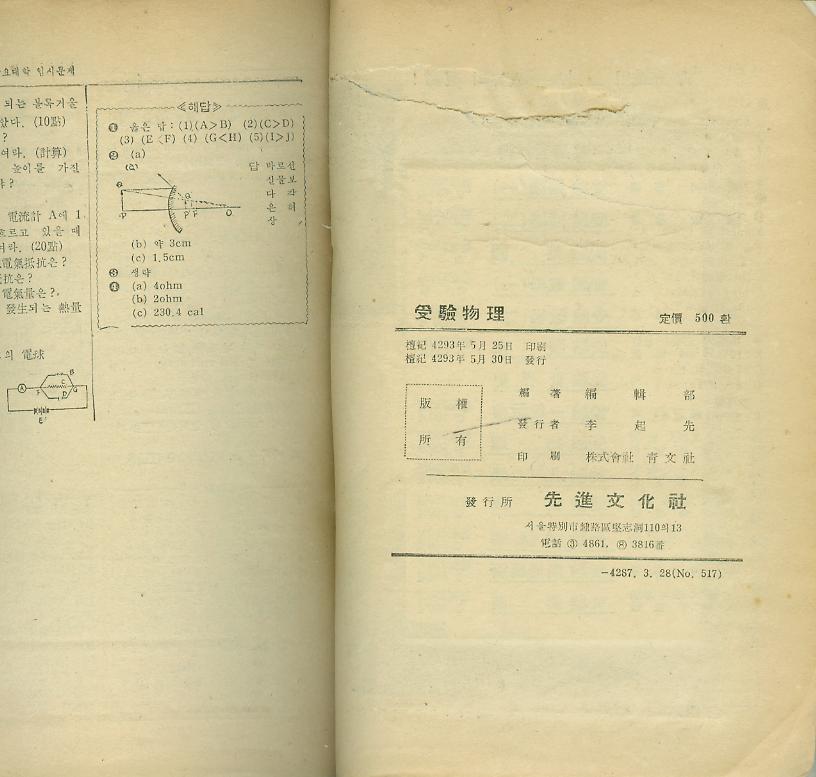 요대학 입시문제
되는 볼록거울
았다. (10點)
?
여라. (計算)
높이를 가질
?
電流計 A에 1
흐르고 있을 때
여라. (20點)
電氣抵抗은?
抗은?
電氣量은?
發生되는 熱量
의 電球
A
B
C
D
F
G
E
≪해답≫
❶ 옳은 답 : (1)(A>B) (2)(C>D)
(3) (E<F) (4) (G<H) (5)(I>J)
❷ (a)
답 바로선
실물보
다 작
은 허
상
P F O
(b) 약 3cm
(c) 1.5cm
❸ 생략
❹ (a) 4ohm
(b) 2ohm
(c) 230.4 cal
受驗物理
定價 500 환
檀紀 4293年 5月 25日 印刷
檀紀 4293年 5月 30日 發行
版權
所有
編著 編輯部
發行者 李起先
印刷 株式會社 靑文社
發行所 先進文化社
서울特別市鍾路區堅志洞110의13
電話 ③ 4861, ⑧ 3816番
−4287. 3. 28(No. 517)